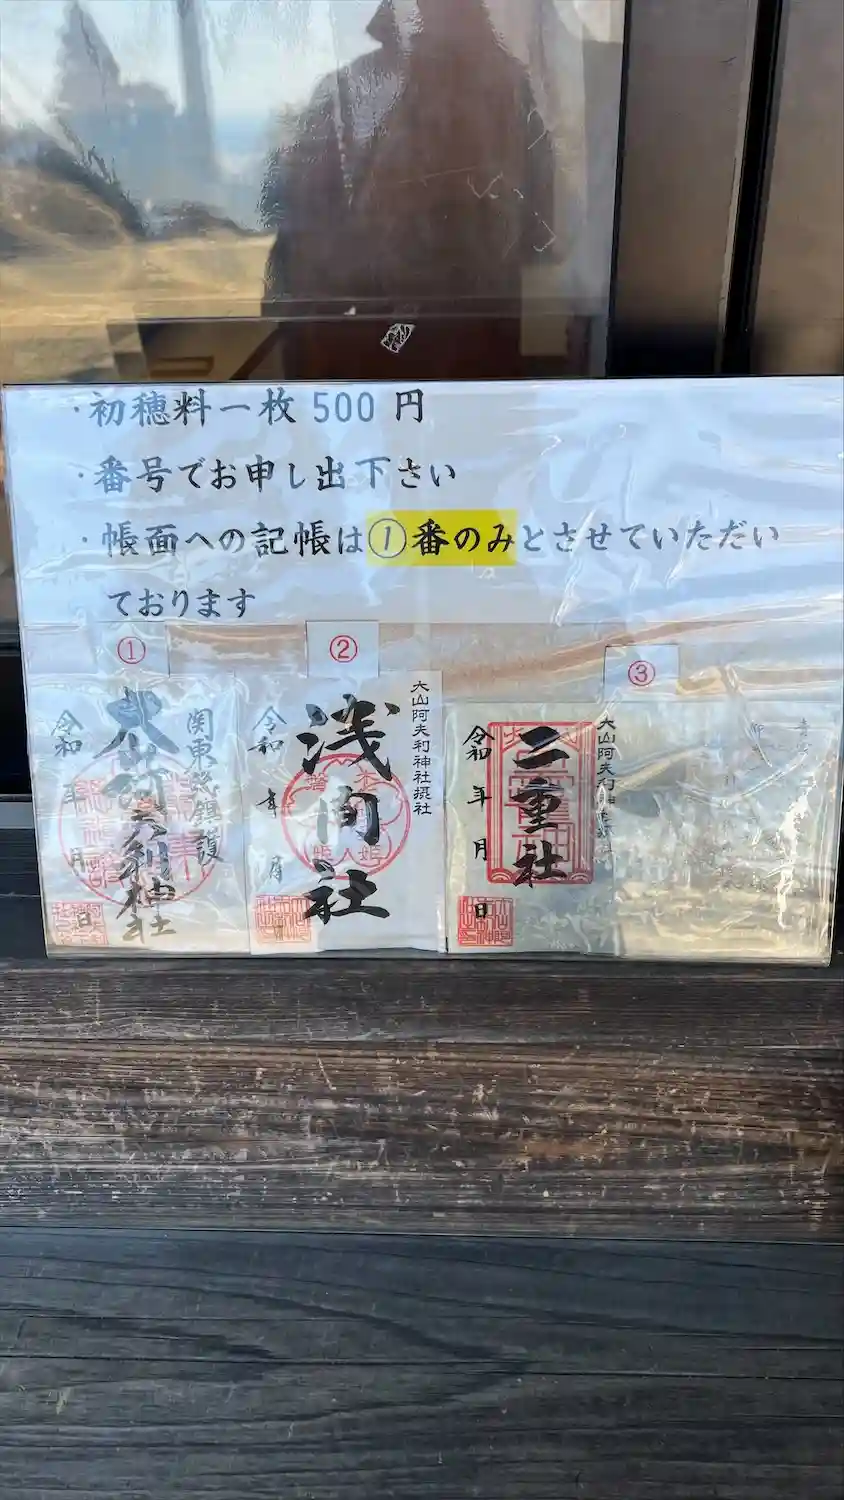 ・初穂料一枚 500 円
・番号でお申し出下さい
・帳面への記帳は①番のみとさせていただい
ております
①
関東総鎮護
大山阿夫利神社
令和 年 月 日
②
大山阿夫利神社摂社
浅間社
令和 年 月
③
大山阿夫利神社
二重社
令和 年 月 日